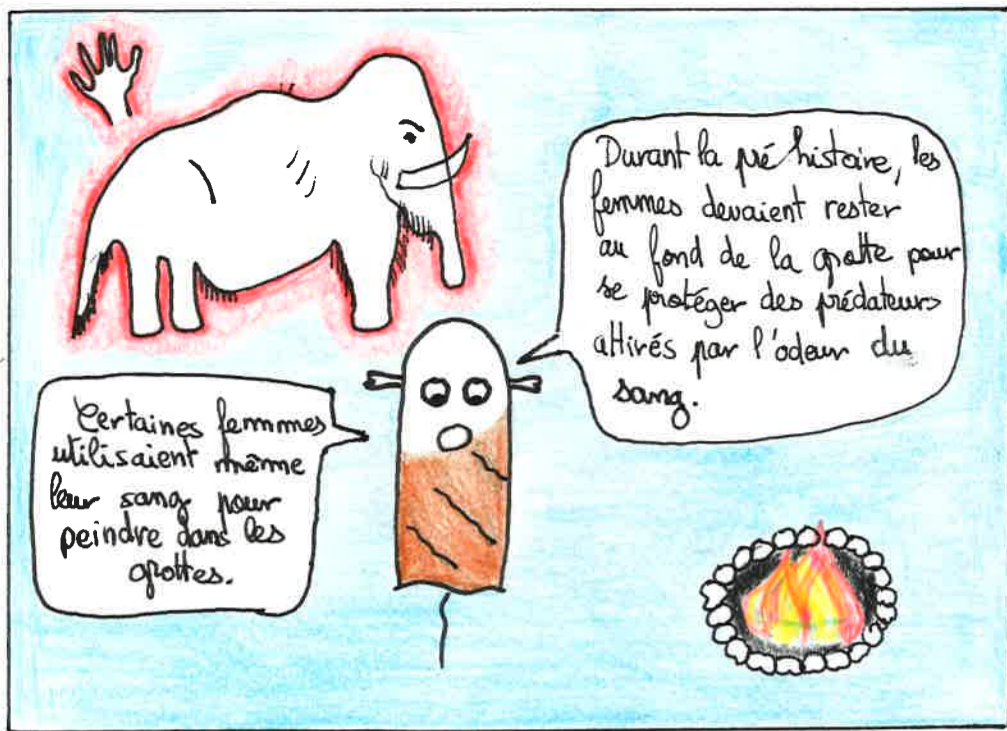 Durant la pré histoire, les
femmes devaient rester
au fond de la grotte pour
se protéger des prédateurs
attirés par l'odeur du
sang.
Certaines femmes
utilisaient même
leur sang pour
peindre dans les
grottes.